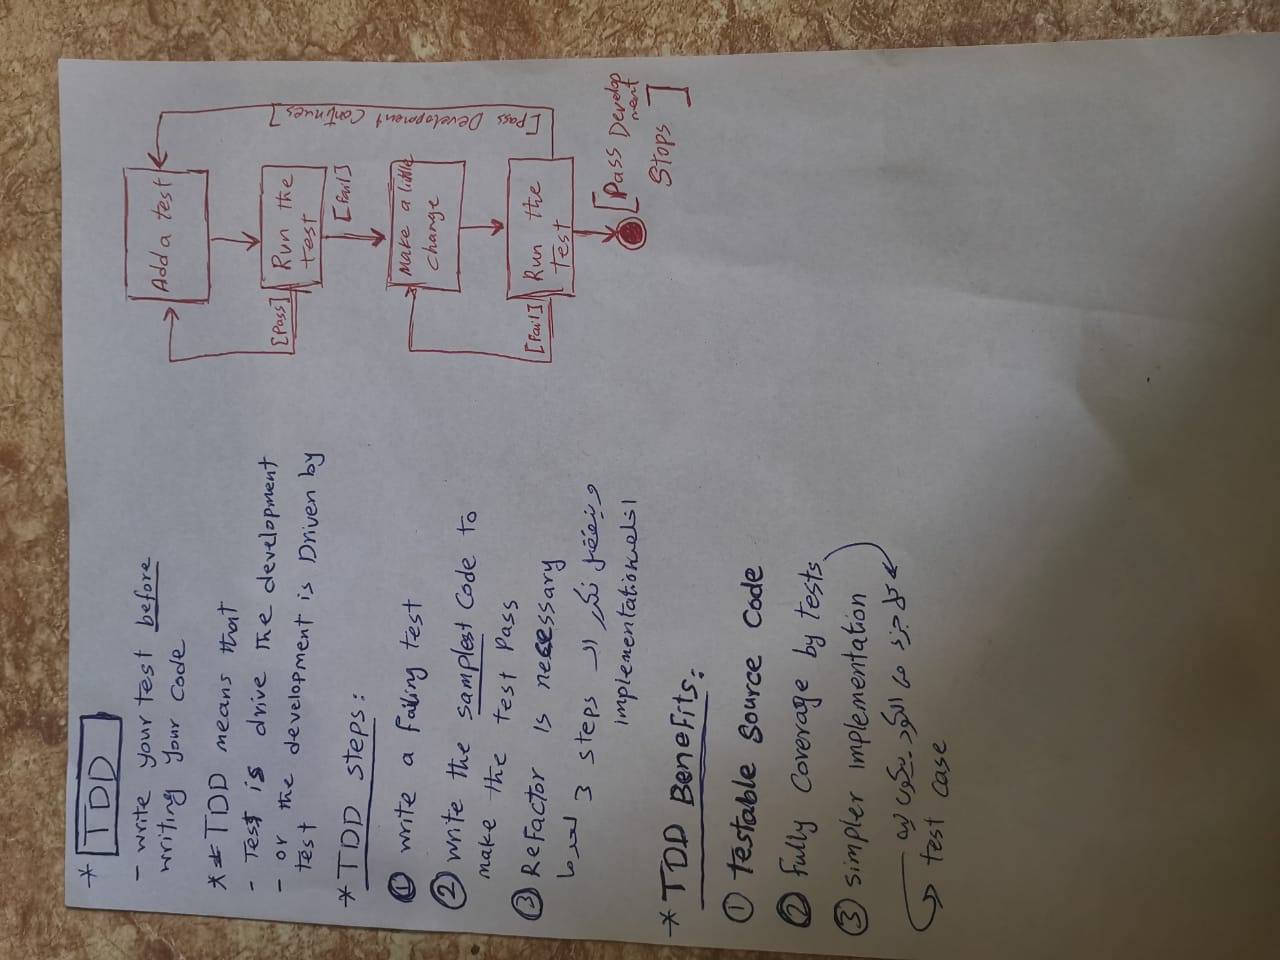 * TDD
- write your test before
writing your code
** TDD means that
- Test is drive the development
- or the development is Driven by
test
* TDD steps:
① write a failing test
② write the samplest code to
make the test Pass
③ ReFactor is necessary
وبنفضل نكرر الـ 3 steps لحد ما
اخلص implementation
* TDD Benefits:
① testable source code
② fully coverage by tests
③ simpler implementation
كل جزء من الكود بيكون ليه
test case
Add a test
[Pass]
Run the
test
[Fail]
Make a little
change
[Fail]
Run the
Test
[Pass Development Continues]
[Pass Develop
ment
Stops]